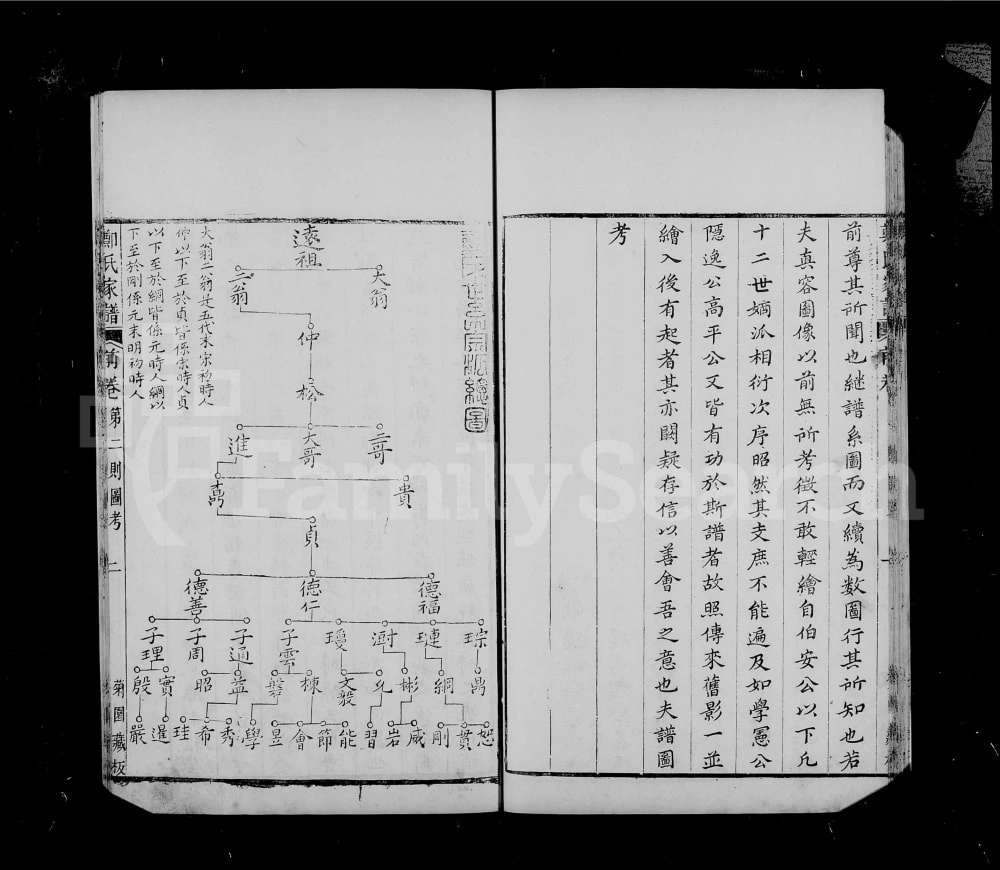 前尊其所聞也継譜系圖而又續為数圖行其所知也若
夫真容圖像以前無所考徵不敢輕繪自伯安公以下凡
十二世嫡派相衍次序昭然其支庶不能遍及如學憲公
隱逸公高平公又皆有功於斯譜者故照傳來舊影一並
繪入後有起者其亦闕疑存信以善會吾之意也夫譜圖
考
遠祖
大翁 二翁
仲
松
三哥 大哥 進
貴 卨
貞
德福 德仁 德善
琮 璉 澍 瓊 子雲 子通 子周 子理
昺 綱 彬 允 文毅 棟 磐 益 昭 實 殷
恕 貫 剛 威 岩 習 能 節 會 昱 學 秀 布 珪 暹 嚴
大翁二翁是五代末宋初時人
仲以下至於貞皆係宋時人貞
以下至於綱皆係元時人綱以
下至於剛係元末明初時人
氏家譜 前卷 第二則圖考 二 菊圃藏板
FamilySearch